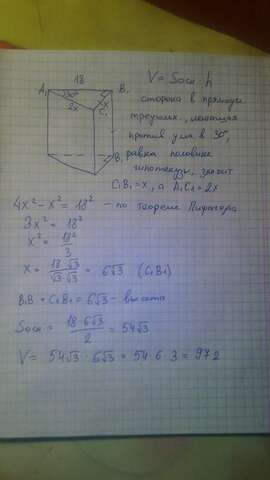 18
V = Sосн h
A₁ 30° B₁
2x x
C₁
сторона в прямоуг
треугольн., лежащая
против угла в 30°,
B₁
равна половине
гипотенузы, значит
C₁B₁ = x, а A₁C₁ = 2x
4x² - x² = 18² - по теореме Пифагора
3x² = 18²
x² = 18²/3
x = 18·√3/√3·√3 = 6√3 (C₁B₁)
B₁B = C₁B₁ = 6√3 - высота
Sосн = 18·6√3/2 = 54√3
V = 54√3 · 6√3 = 54·6·3 = 972